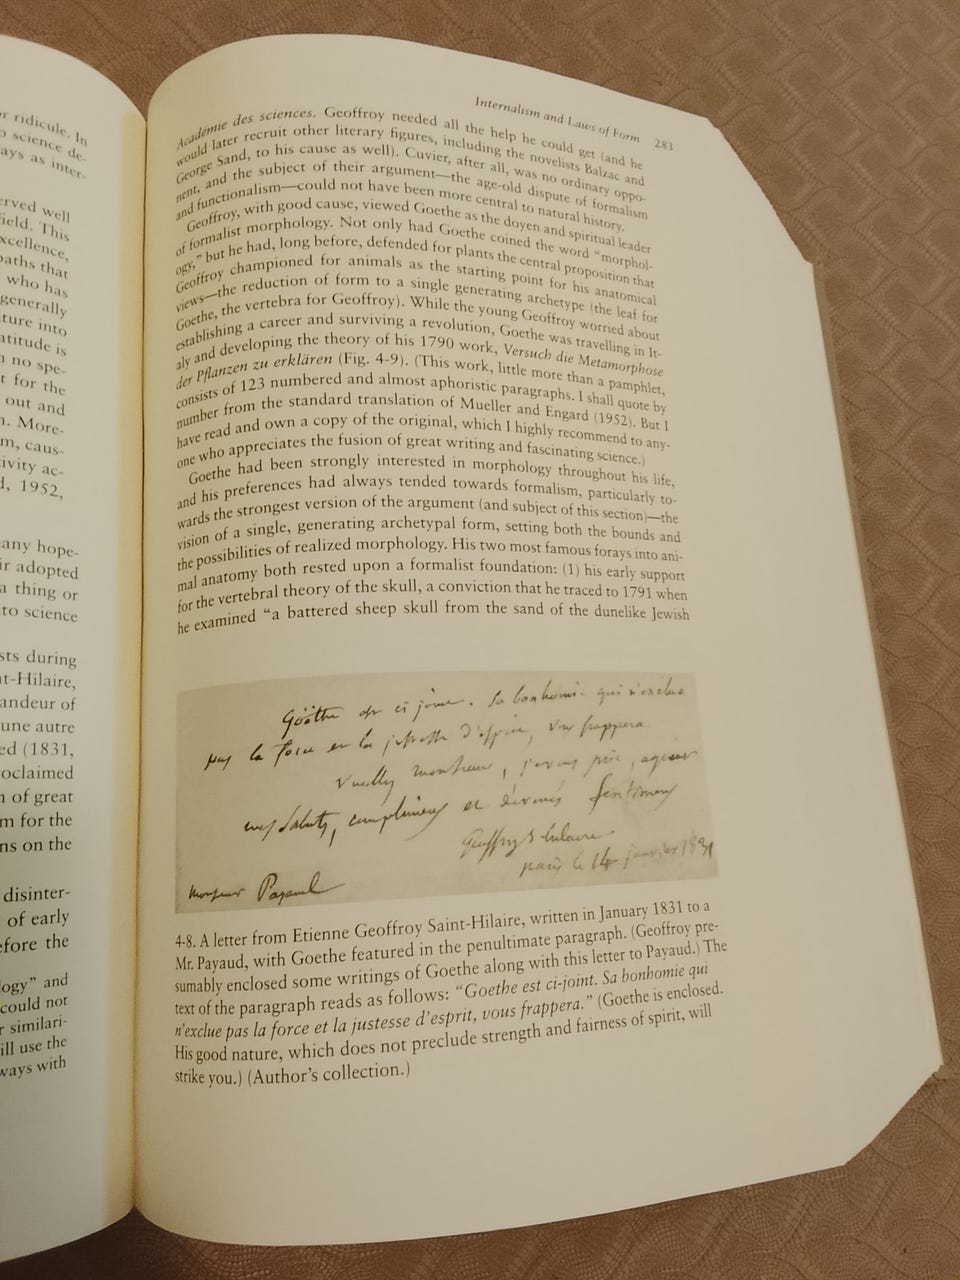 r ridicule. In
o science de-
ays as inter-
erved well
field. This
xcellence,
paths that
who has
generally
ture into
titude is
n no spe-
t for the
out and
n. More-
m, caus-
ivity ac-
d, 1952,
any hope-
ir adopted
a thing or
to science
sts during
nt-Hilaire,
andeur of
une autre
ed (1831,
roclaimed
n of great
m for the
ns on the
disinter-
of early
efore the
logy” and
could not
r similari-
ill use the
ways with
Internalism and Laws of Form 283
Académie des sciences. Geoffroy needed all the help he could get (and he
would later recruit other literary figures, including the novelists Balzac and
George Sand, to his cause as well). Cuvier, after all, was no ordinary oppo-
nent, and the subject of their argument—the age-old dispute of formalism
and functionalism—could not have been more central to natural history.
Geoffroy, with good cause, viewed Goethe as the doyen and spiritual leader
of formalist morphology. Not only had Goethe coined the word “morphol-
ogy,” but he had, long before, defended for plants the central proposition that
Geoffroy championed for animals as the starting point for his anatomical
views—the reduction of form to a single generating archetype (the leaf for
Goethe, the vertebra for Geoffroy). While the young Geoffroy worried about
establishing a career and surviving a revolution, Goethe was travelling in It-
aly and developing the theory of his 1790 work, Versuch die Metamorphose
der Pflanzen zu erklären (Fig. 4-9). (This work, little more than a pamphlet,
consists of 123 numbered and almost aphoristic paragraphs. I shall quote by
number from the standard translation of Mueller and Engard (1952). But I
have read and own a copy of the original, which I highly recommend to any-
one who appreciates the fusion of great writing and fascinating science.)
Goethe had been strongly interested in morphology throughout his life,
and his preferences had always tended towards formalism, particularly to-
wards the strongest version of the argument (and subject of this section)—the
vision of a single, generating archetypal form, setting both the bounds and
the possibilities of realized morphology. His two most famous forays into ani-
mal anatomy both rested upon a formalist foundation: (1) his early support
for the vertebral theory of the skull, a conviction that he traced to 1791 when
he examined “a battered sheep skull from the sand of the dunelike Jewish
Goëthe est ci joint. Sa bonhomie qui n'exclue
pas la force et la justesse d'esprit, vous frappera
Veuillez monsieur, je vous prie, agréer
mes saluts, compliments et dévoués sentiments
Geoffroy S Hilaire
paris le 14 janvier 1831
Monsieur Payaud
4-8. A letter from Etienne Geoffroy Saint-Hilaire, written in January 1831 to a
Mr. Payaud, with Goethe featured in the penultimate paragraph. (Geoffroy pre-
sumably enclosed some writings of Goethe along with this letter to Payaud.) The
text of the paragraph reads as follows: “Goethe est ci-joint. Sa bonhomie qui
n'exclue pas la force et la justesse d'esprit, vous frappera.” (Goethe is enclosed.
His good nature, which does not preclude strength and fairness of spirit, will
strike you.) (Author's collection.)